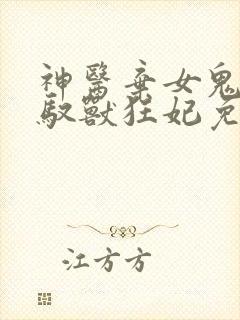 神醫棄女鬼
馭獸狂妃免
江方方